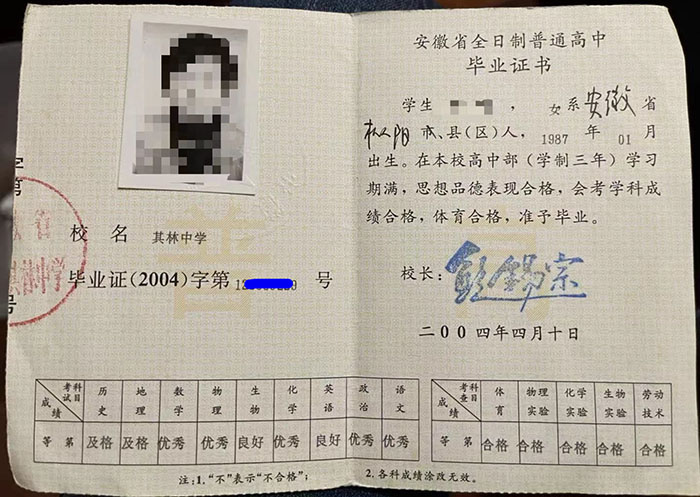 校 名 其林中学
毕业证(2004)字第 号
考试科目 历史 地理 数学 物理 生物 化学 英语 政治 语文
成绩
等 第 及格 及格 优秀 优秀 良好 优秀 良好 优秀 优秀
注:1.“不”表示“不合格”;
安徽省全日制普通高中
毕业证书
学生 ,女系安徽省
枞阳市、县(区)人, 1987 年 01 月
出生。在本校高中部(学制三年)学习
期满,思想品德表现合格,会考学科成
绩合格,体育合格,准予毕业。
校长:
二00四年四月十日
考查科目 体育 物理实验 化学实验 生物实验 劳动技术
成绩
等 第 合格 合格 合格 合格 合格
2.各科成绩涂改无效。